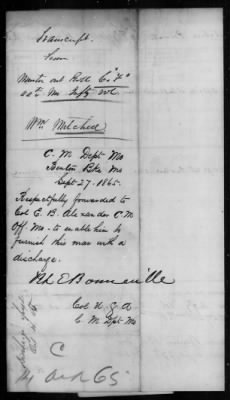 Transcript.
From
Muster out Roll Co "F"
Mo Infty Vol
Wm Mitchell
C. M. Dept Mo
Benton Bks Mo
Sept 27. 1865.
Respectfully forwarded to
Col E. B. Alexander C. M.
Off. Mo - to enable him to
furnish this man with a
discharge.
Bonneville
Col U. S. A
C. M. Dept Mo
C